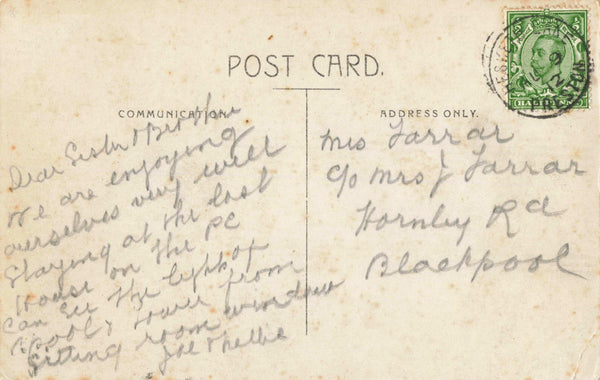 POST CARD.
COMMUNICATION.
Dear Sister & Brother
We are enjoying
ourselves very well
Staying at the last
House on the PC
Can see the lights of
B'pool & Tower from
Sitting room window
Joe & Nellie
ADDRESS ONLY.
Mrs Farrar
c/o Mrs J Farrar
Hornby Rd
Blackpool
HALFPENNY
PRESTON